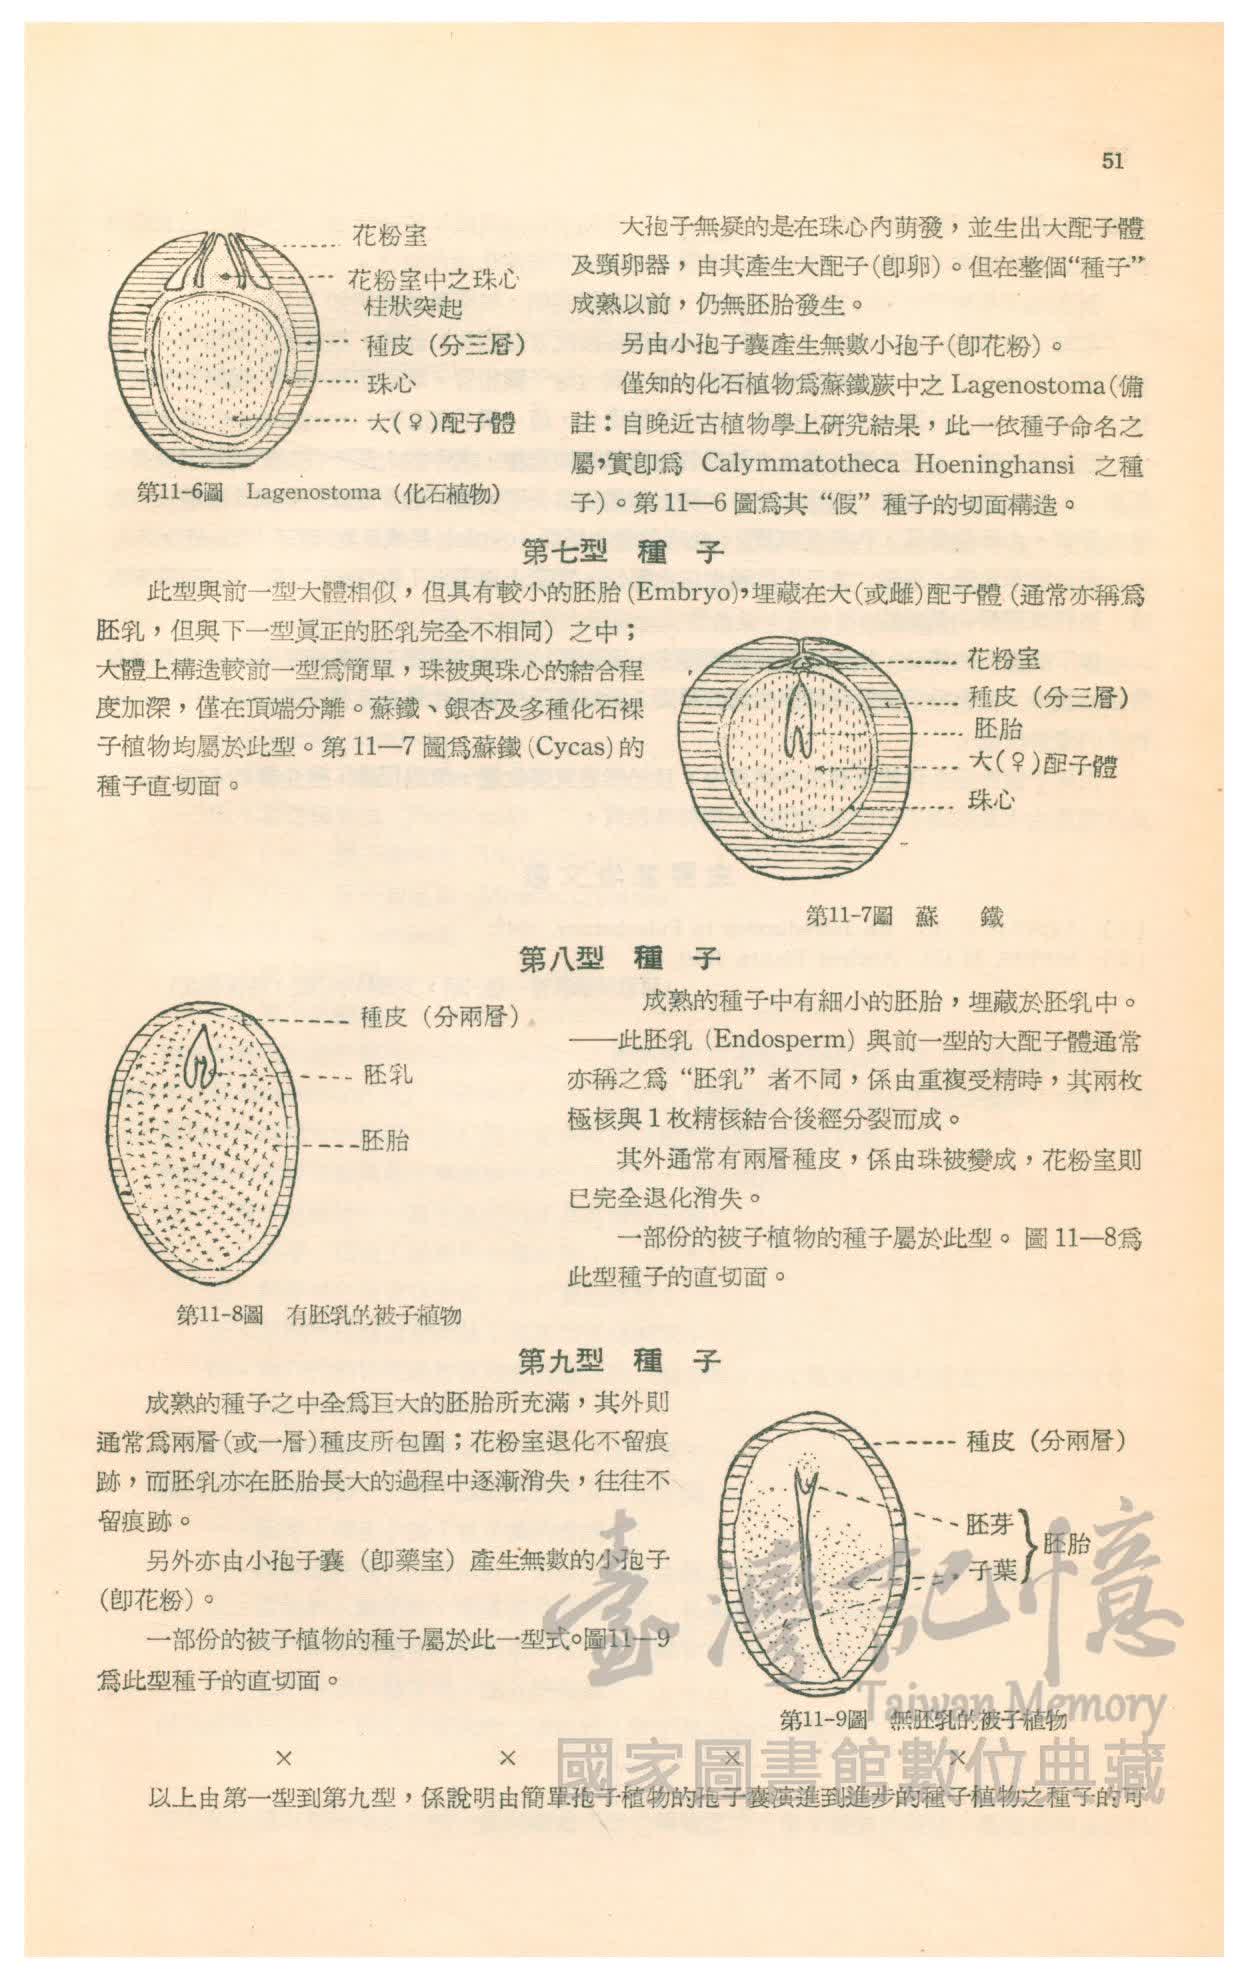 51
花粉室
花粉室中之珠心
柱狀突起
種皮（分三層）
珠心
大(♀)配子體
第11-6圖　Lagenostoma (化石植物)
大孢子無疑的是在珠心內萌發，並生出大配子體
及頸卵器，由其產生大配子(卽卵)。但在整個“種子”
成熟以前，仍無胚胎發生。
另由小孢子囊產生無數小孢子(卽花粉)。
僅知的化石植物爲蘇鐵蕨中之 Lagenostoma(備
註：自晚近古植物學上硏究結果，此一依種子命名之
屬，實卽爲 Calymmatotheca Hoeninghansi 之種
子)。第 11—6 圖爲其 “假” 種子的切面構造。
第七型　種　子
此型與前一型大體相似，但具有較小的胚胎(Embryo)，埋藏在大(或雌)配子體 (通常亦稱爲
胚乳，但與下一型眞正的胚乳完全不相同) 之中；
大體上構造較前一型爲簡單，珠被與珠心的結合程
度加深，僅在頂端分離。蘇鐵、銀杏及多種化石裸
子植物均屬於此型。第 11—7 圖爲蘇鐵(Cycas)的
種子直切面。
花粉室
種皮（分三層）
胚胎
大(♀)配子體
珠心
第11-7圖　蘇　鐵
第八型　種　子
種皮（分兩層）
胚乳
胚胎
第11-8圖　有胚乳的被子植物
成熟的種子中有細小的胚胎，埋藏於胚乳中。
——此胚乳 (Endosperm) 與前一型的大配子體通常
亦稱之爲 “胚乳” 者不同，係由重複受精時，其兩枚
極核與 1 枚精核結合後經分裂而成。
其外通常有兩層種皮，係由珠被變成，花粉室則
已完全退化消失。
一部份的被子植物的種子屬於此型。圖 11—8爲
此型種子的直切面。
第九型　種　子
成熟的種子之中全爲巨大的胚胎所充滿，其外則
通常爲兩層(或一層)種皮所包圍；花粉室退化不留痕
跡，而胚乳亦在胚胎長大的過程中逐漸消失，往往不
留痕跡。
另外亦由小孢子囊（卽藥室）產生無數的小孢子
(卽花粉)。
一部份的被子植物的種子屬於此一型式。圖11—9
爲此型種子的直切面。
種皮（分兩層）
胚芽
子葉
胚胎
第11-9圖　無胚乳的被子植物
×　×　×　×
以上由第一型到第九型，係說明由簡單孢子植物的孢子囊演進到進步的種子植物之種子的可
臺灣記憶
Taiwan Memory
國家圖書館數位典藏